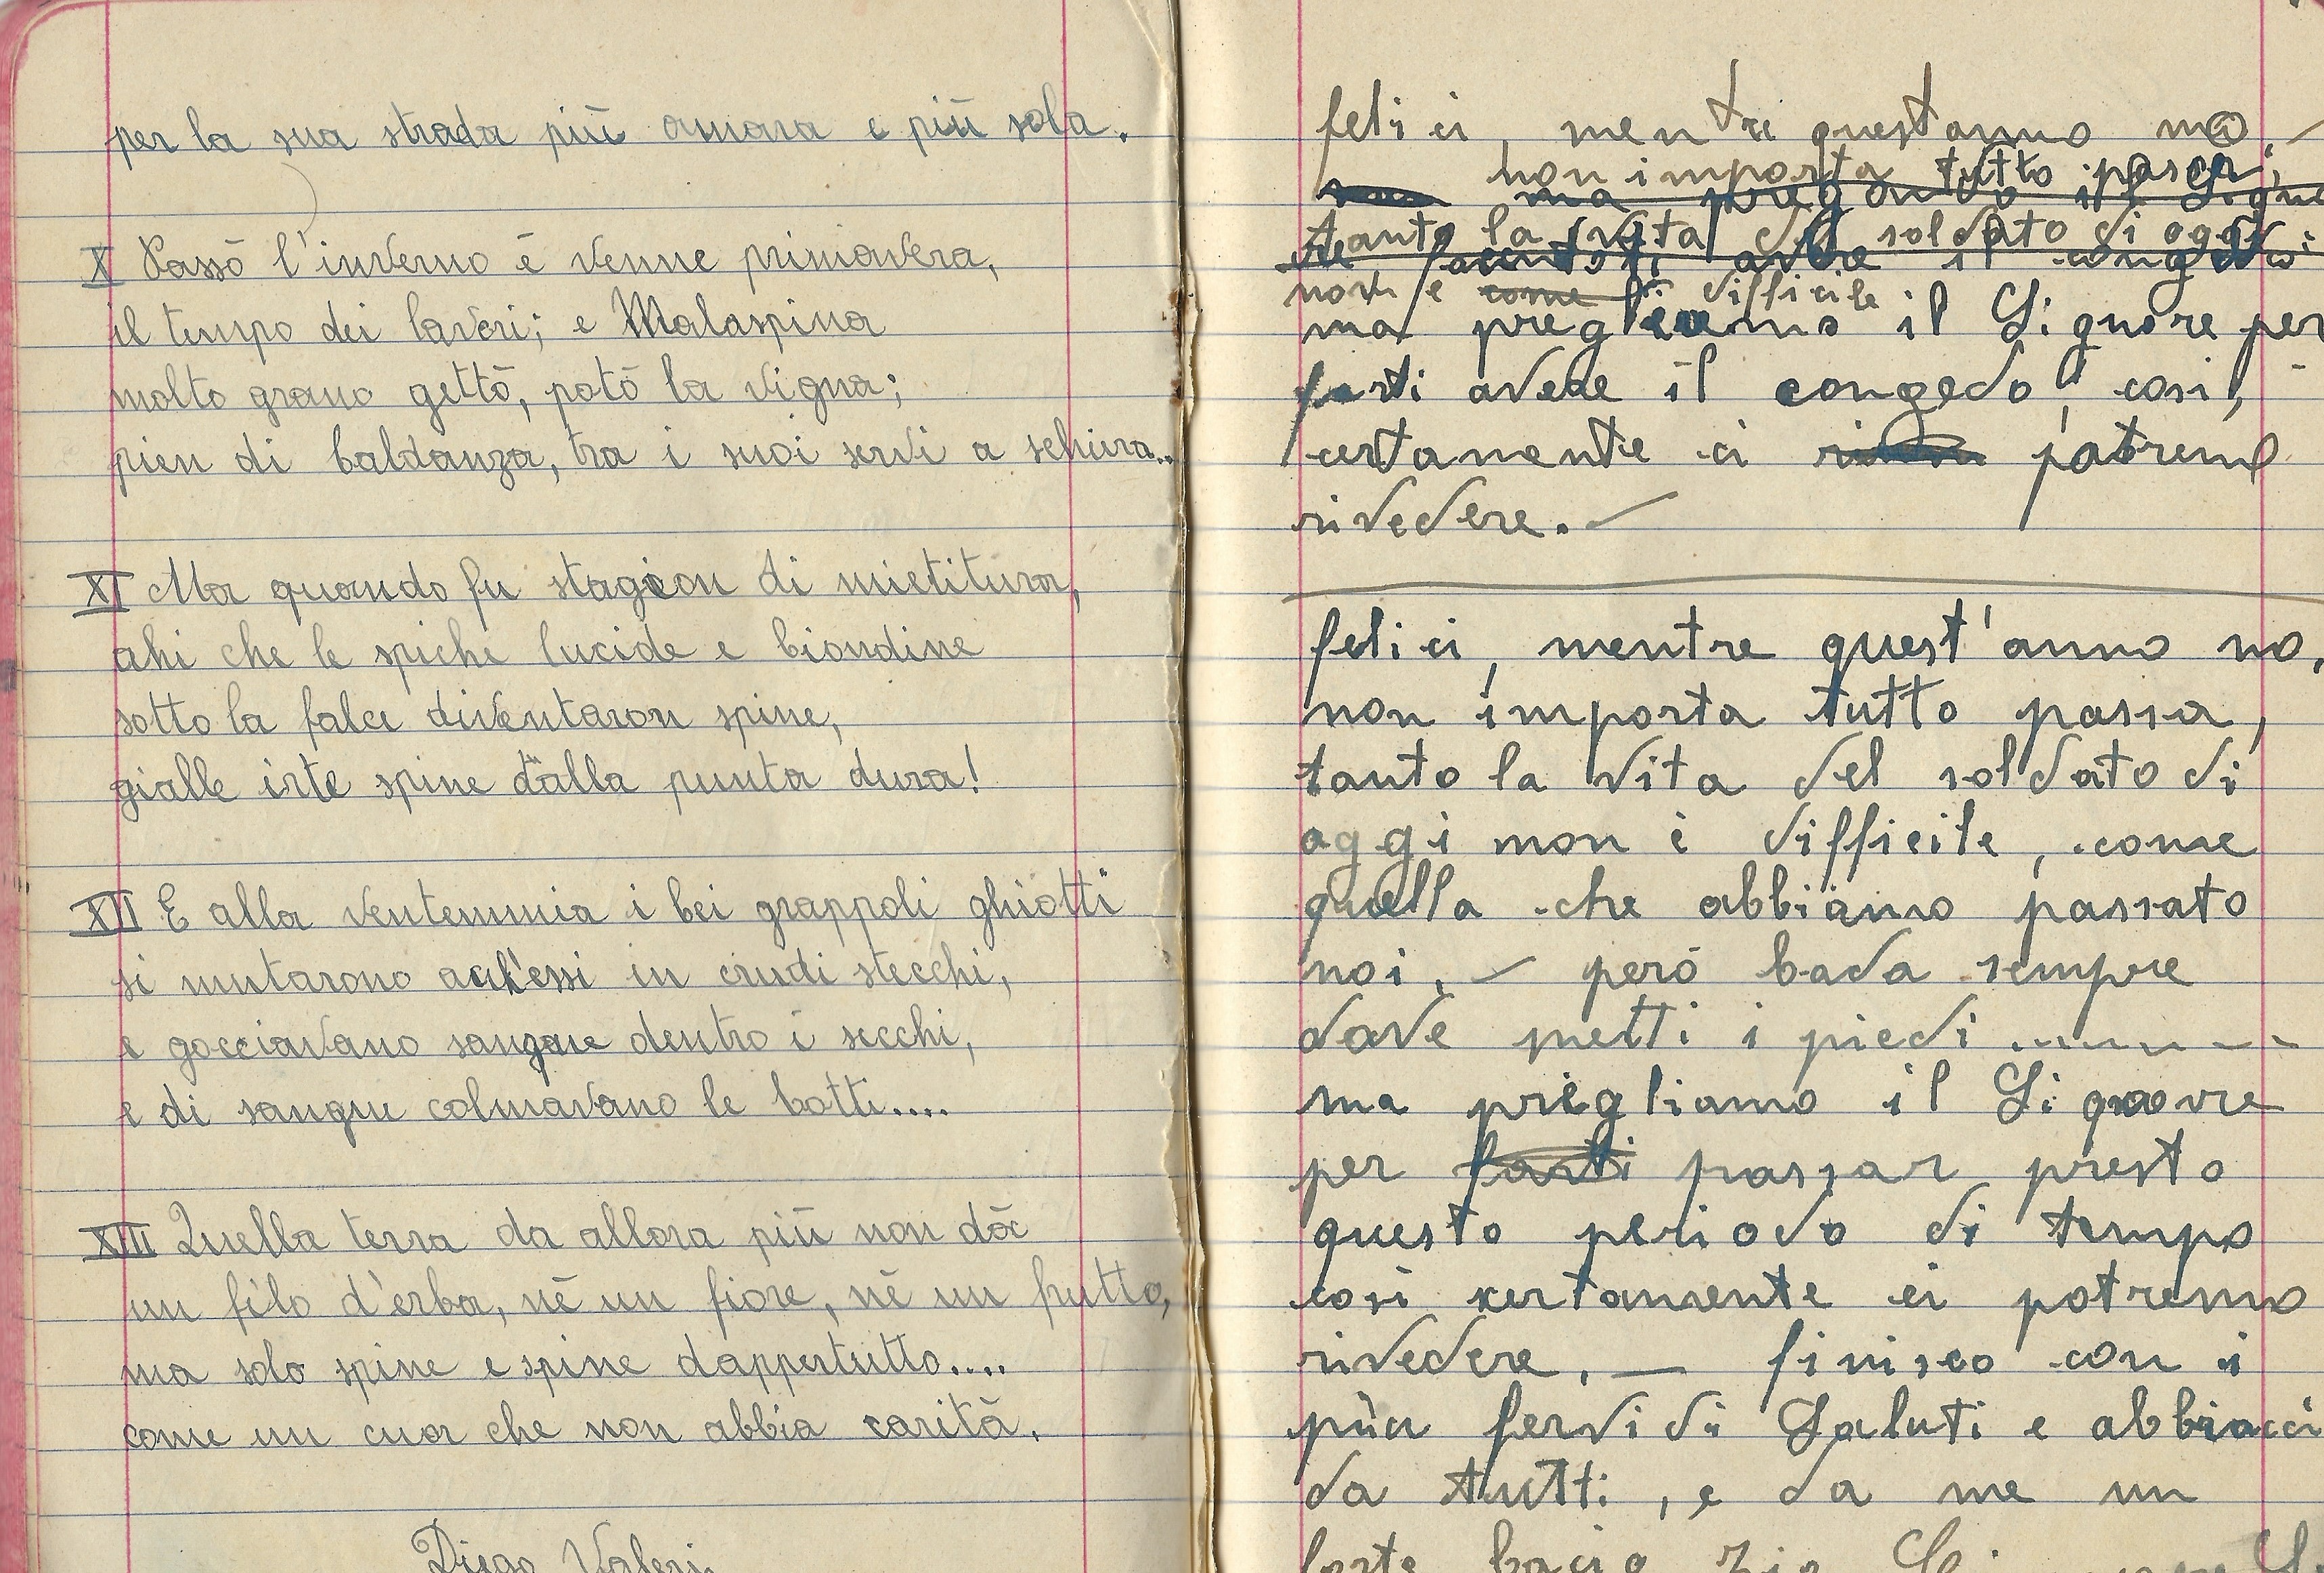 per la sua strada più amara e più sola.
X Passò l'inverno e venne primavera,
il tempo dei lavori; e Malaspina
molto grano gettò, potò la vigna;
pien di baldanza, tra i suoi servi a schiera..
XI Ma quando fu stagion di mietitura,
ahi che le spiche lucide e biondine
sotto la falce diventaron spine,
gialle irte spine dalla punta dura!
XII E alla ventemmia i bei grappoli ghiotti
si mutarono in crudi stecchi,
e gocciavano sangue dentro i secchi,
e di sangue colmavano le botti....
XIII Quella terra da allora più non dà
un filo d'erba, nè un fiore, nè un frutto,
ma solo spine e spine dappertutto....
come un cuor che non abbia carità.
Diego Valeri
felici, mentre quest anno no, -
non importa tutto passa,
ma pregando il Signo
tanto la vita del soldato di oggi
avere il congedo
non è come difficile
ma pregheremo il Signore per
farti avere il congedo, cosi,
certamente ci potremo
rivedere. -
felici, mentre quest'anno no,
non importa tutto passa,
tanto la vita del soldato di
oggi non è difficile, come
quella che abbiamo passato
noi, - però bada sempre
dove metti i piedi ........
ma pregliamo il Signore
per farti passar presto
questo periodo di tempo
così certamente ci potremo
rivedere. - finisco con i
più fervidi Saluti e abbracci
da tutti, e da me un
forte bacio Zio